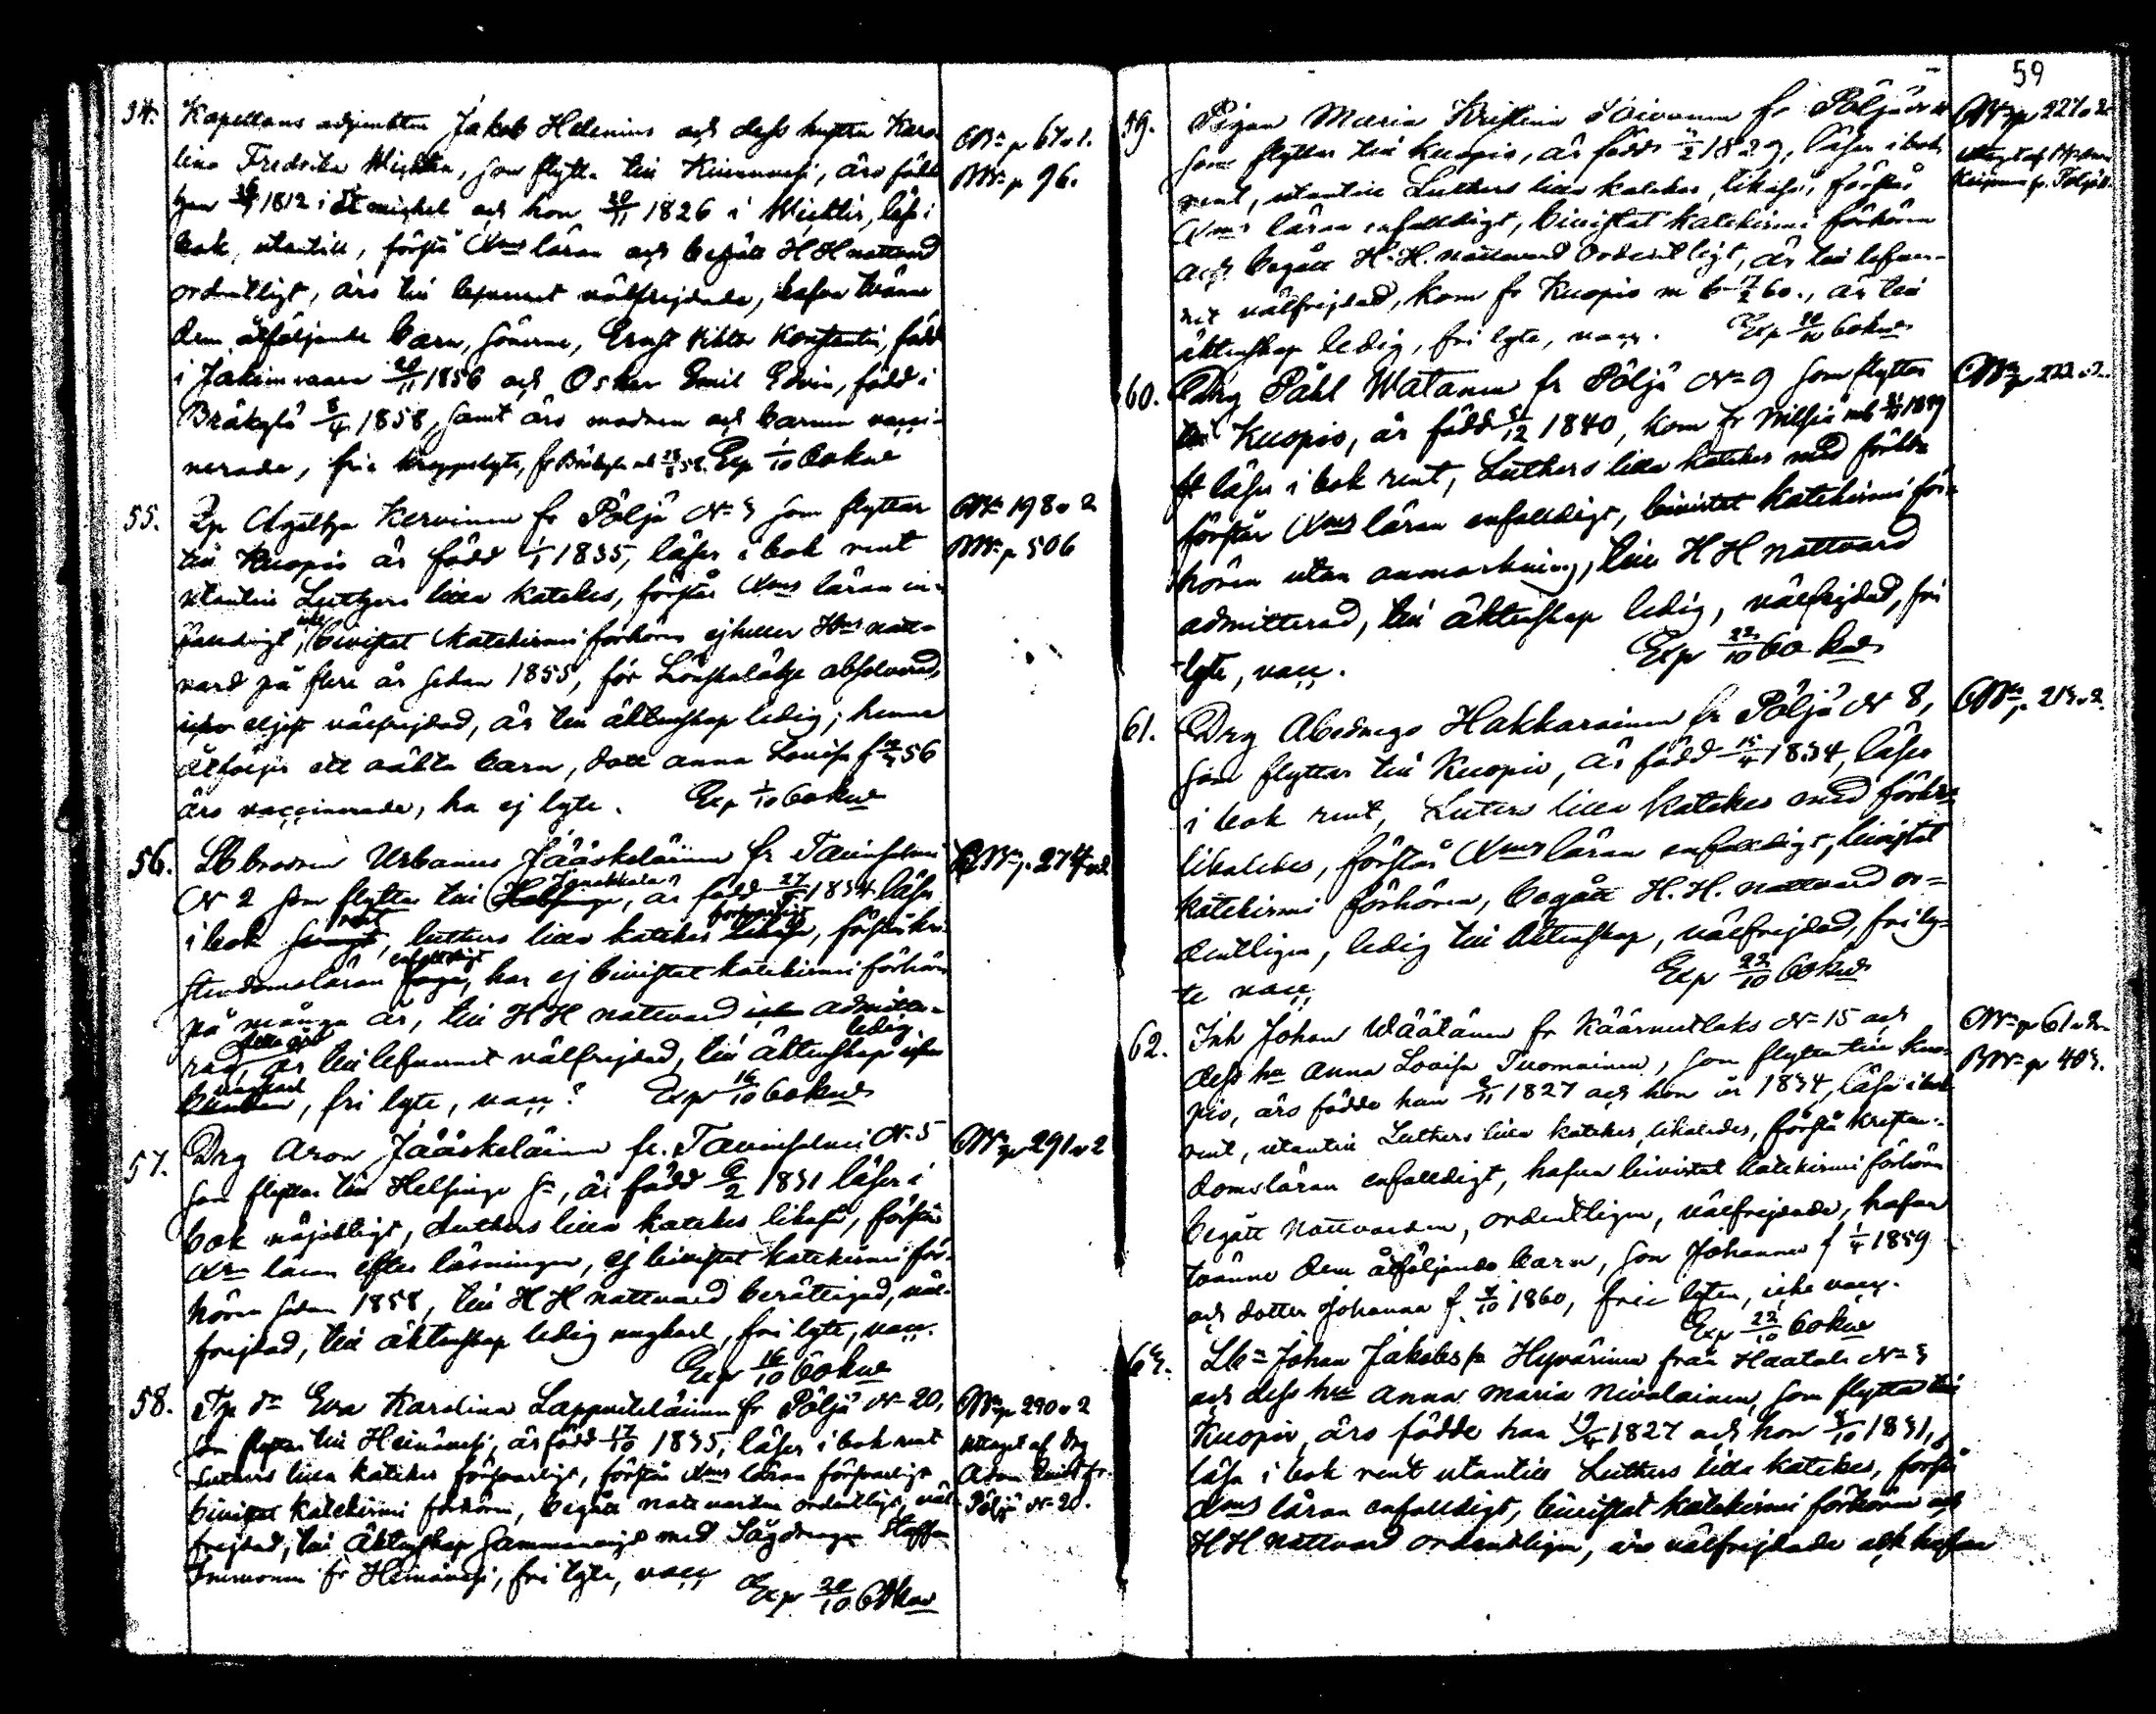 54. Kapellans adjunkten Jakob Helenius och dess hustru Karo-
lina Fredrika Wichtin, som flytta till Kiuruvesi, äro födde
han 1812 i St michel och hon 20/11 1826 i Wichtis, läsa i
bok, utantill, förstå Xms läran och begått HH nattvard
ordentligt, äro till lefvernet välfrejdade, hafva tvänne
dem åtföljande barn, sönerne, Ernst Viktor Konstantin, född
i Jakimvaara 20/11 1856 och Oskar Emil Edvin, född i
Bräkylä 8/4 1858, samt äro modren och barnen vacci-
nerade, fria kroppslyte, Exp 1/10 60 kw
N= p 61 v 1.
BN= p 96.
55. Agatha Kervinen fr Pöljä N= 3 som flyttar
till Kuopio är född 1/1 1835, läser i bok rent
utantill Luthers lilla katekes, förstår Xms läran en-
faldigt, icke bivistat katekismi förhören ejheller Hns natt-
vard på flere år sedan 1855, för Lönskaläge absolverad,
icke eljest välfrejdad, är till äktenskap ledig; henne
åtföljer ett oäkta barn, dott Anna Lovisa f 56
äro vaccinerade, ha ej lyte. Exp 1/10 60 kw
N= 198 v 2
BN= p 506
56. Lb brodren Urbanus Jääskeläinen fr Tavinsalmi
N 2 som flyttar till Helsinge, är född 27 1834 läser
i bok rent, luthers lilla katekes försvarligt, förstår kri-
stendomsläran enfaldigt, har ej bivistat katekismi förhören
på många år, till HH nattvard admitte-
rad, är till lefvernet välfrejdad, till äktenskap ledig
fri lyte, vacc? Exp 16/10 60 kw
N= p. 274 v 2
57. Drg Aron Jääskeläinen fr. Tavinsalmi N= 5
som flyttar till Helsinge sn, är född 6/2 1831 läser i
bok nöjaktligt, Luthers lilla katekes likaså, förstår
Xms läran efter läsningen, ej bivistat katekismi för-
hören sedan 1858, till HH nattvard berättigad, väl-
frejdad, till äktenskap ledig ungkarl, fri lyte, vacc.
Exp 16/10 60 kw
N= p 291 v 2
58. Eva Karolina Lappveteläinen fr Pöljä N= 20,
som flyttar till Heinävesi, är född 17/10 1835, läser i bok rent
Luthers lilla katekes försvarligt, förstår Xms läran försvarligt
bivistat katekismi förhören, begått nattvarden ordentligt, väl-
frejdad, till äktenskap sammanvigd med Sågdrengen Staffan
Immonen fr Heinävesi, fri lyte, vacc Exp 20/10 60 kw
N= p 290 v 2
uttaget af Drg
Adam
Pöljä N= 20.
59
59. Pigan Maria Kristina Toivanen fr Pöljä
som flyttar till Kuopio, är född 1829, läser i bok
rent, utantill Luthers lilla katekes, likaså, förstår
Xms läran enfaldigt, bivistat katekismi förhören
och begått H. H. nattvard ordentligt, är till lefver-
net välfrejdad, kom fr Kuopio m b 60., är till
äktenskap ledig, fri lyte, vacc. Exp 20/10 60 kw
N= p 227 v 2
uttaget af
fr. Pöljä
60. Drg Påhl Watanen fr Pöljä N= 9 som flyttar
till Kuopio, är född 1840, kom fr Nilsiä mb 1859
läser i bok rent, Luthers lilla katekes med förkla-
förstår Xms läran enfaldigt, bivistat katekismi för-
hören utan anmärkning, till HH nattvard
admitterad, till äktenskap ledig, välfrejdad, fri
lyte, vacc. Exp 22/10 60 kw
N= p 222 v 2.
61. Drg Abednego Hakkarainen fr Pöljä N 8,
som flyttar till Kuopio, är född 15/4 1834, läser
i bok rent, Luters lilla katekes med förkl=
likaledes, förstår Xms läran enfaldigt, bivistat
katekismi förhören, begått H. H. nattvard or=
dentligen, ledig till äktenskap, välfrejdad, fri ly-
te vacc Exp 22/10 60 kw
N= p. 213 v 2.
62. Inh Johan Wäätänen fr Käärmelaks N= 15 och
dess hu Anna Lovisa Tuomainen, som flytta till Kuo-
pio, äro födde han 1827 och hon år 1834, läsa i bok
rent, utantill Luthers lilla katekes, likaledes, förstå kristen-
domsläran enfaldigt, hafva bivistat katekismi förhören
begått nattvarden, ordentligen, välfrejdade, hafva
tvänne dem åtföljande barn, son Johannes f 1/4 1859
och dotter Johanna f 7/10 1860, fria lyten, icke vacc.
Exp 22/10 60 kw
N= p 61 v 2
BN= p 403.
63. Lb= Johan Jakobs s= Hyvärinen från Haatala N= 3
och dess hu Anna Maria Nivalainen, som flytta till
Kuopio, äro födde han 19/4 1827 och hon 8/10 1831,
läsa i bok rent utantill Luthers lilla katekes, förstå
Xms läran enfaldigt, bivistat katekismi förhören och
HH nattvard ordentligen, äro välfrejdade och hafva